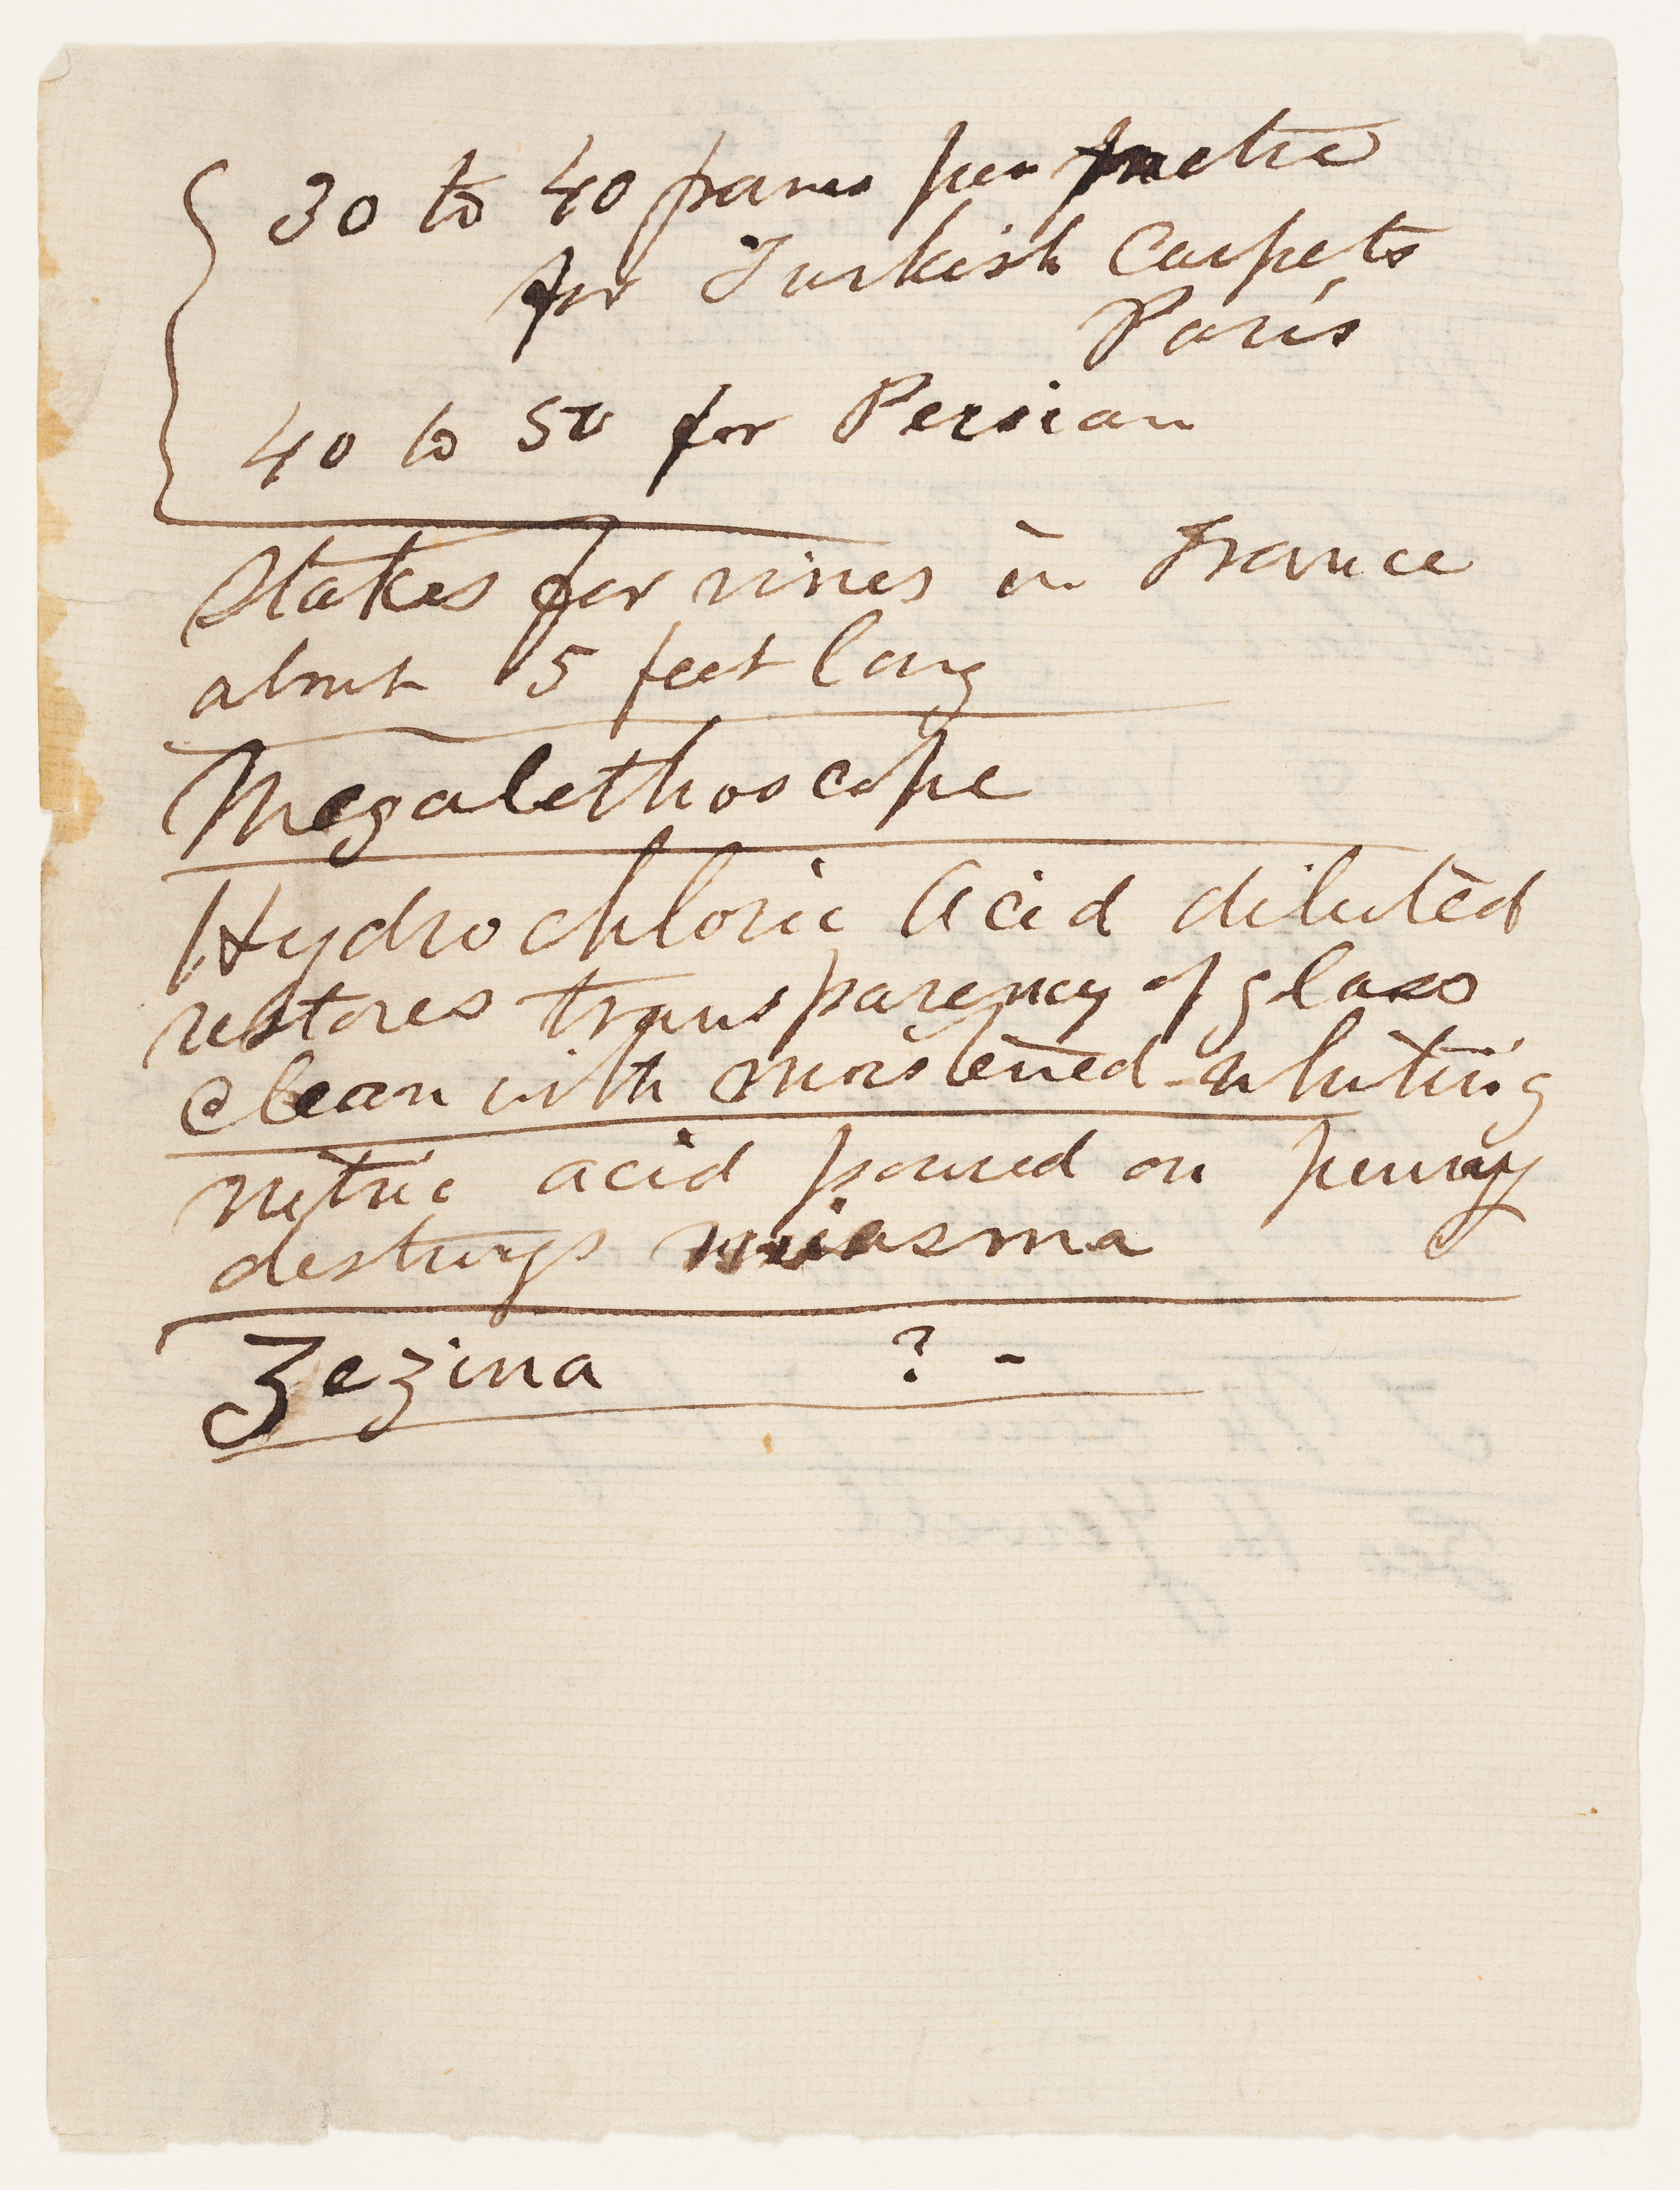 30 to 40 francs per metre
for Turkish Carpets
Paris
40 to 50 for Persian
Stakes for vines in France
about 5 feet long
Megalethoscope
Hydrochloric Acid diluted
restores transparency of glass
clean with moistened whiting
nitric acid poured on penny
destroys miasma
Zezina ? -